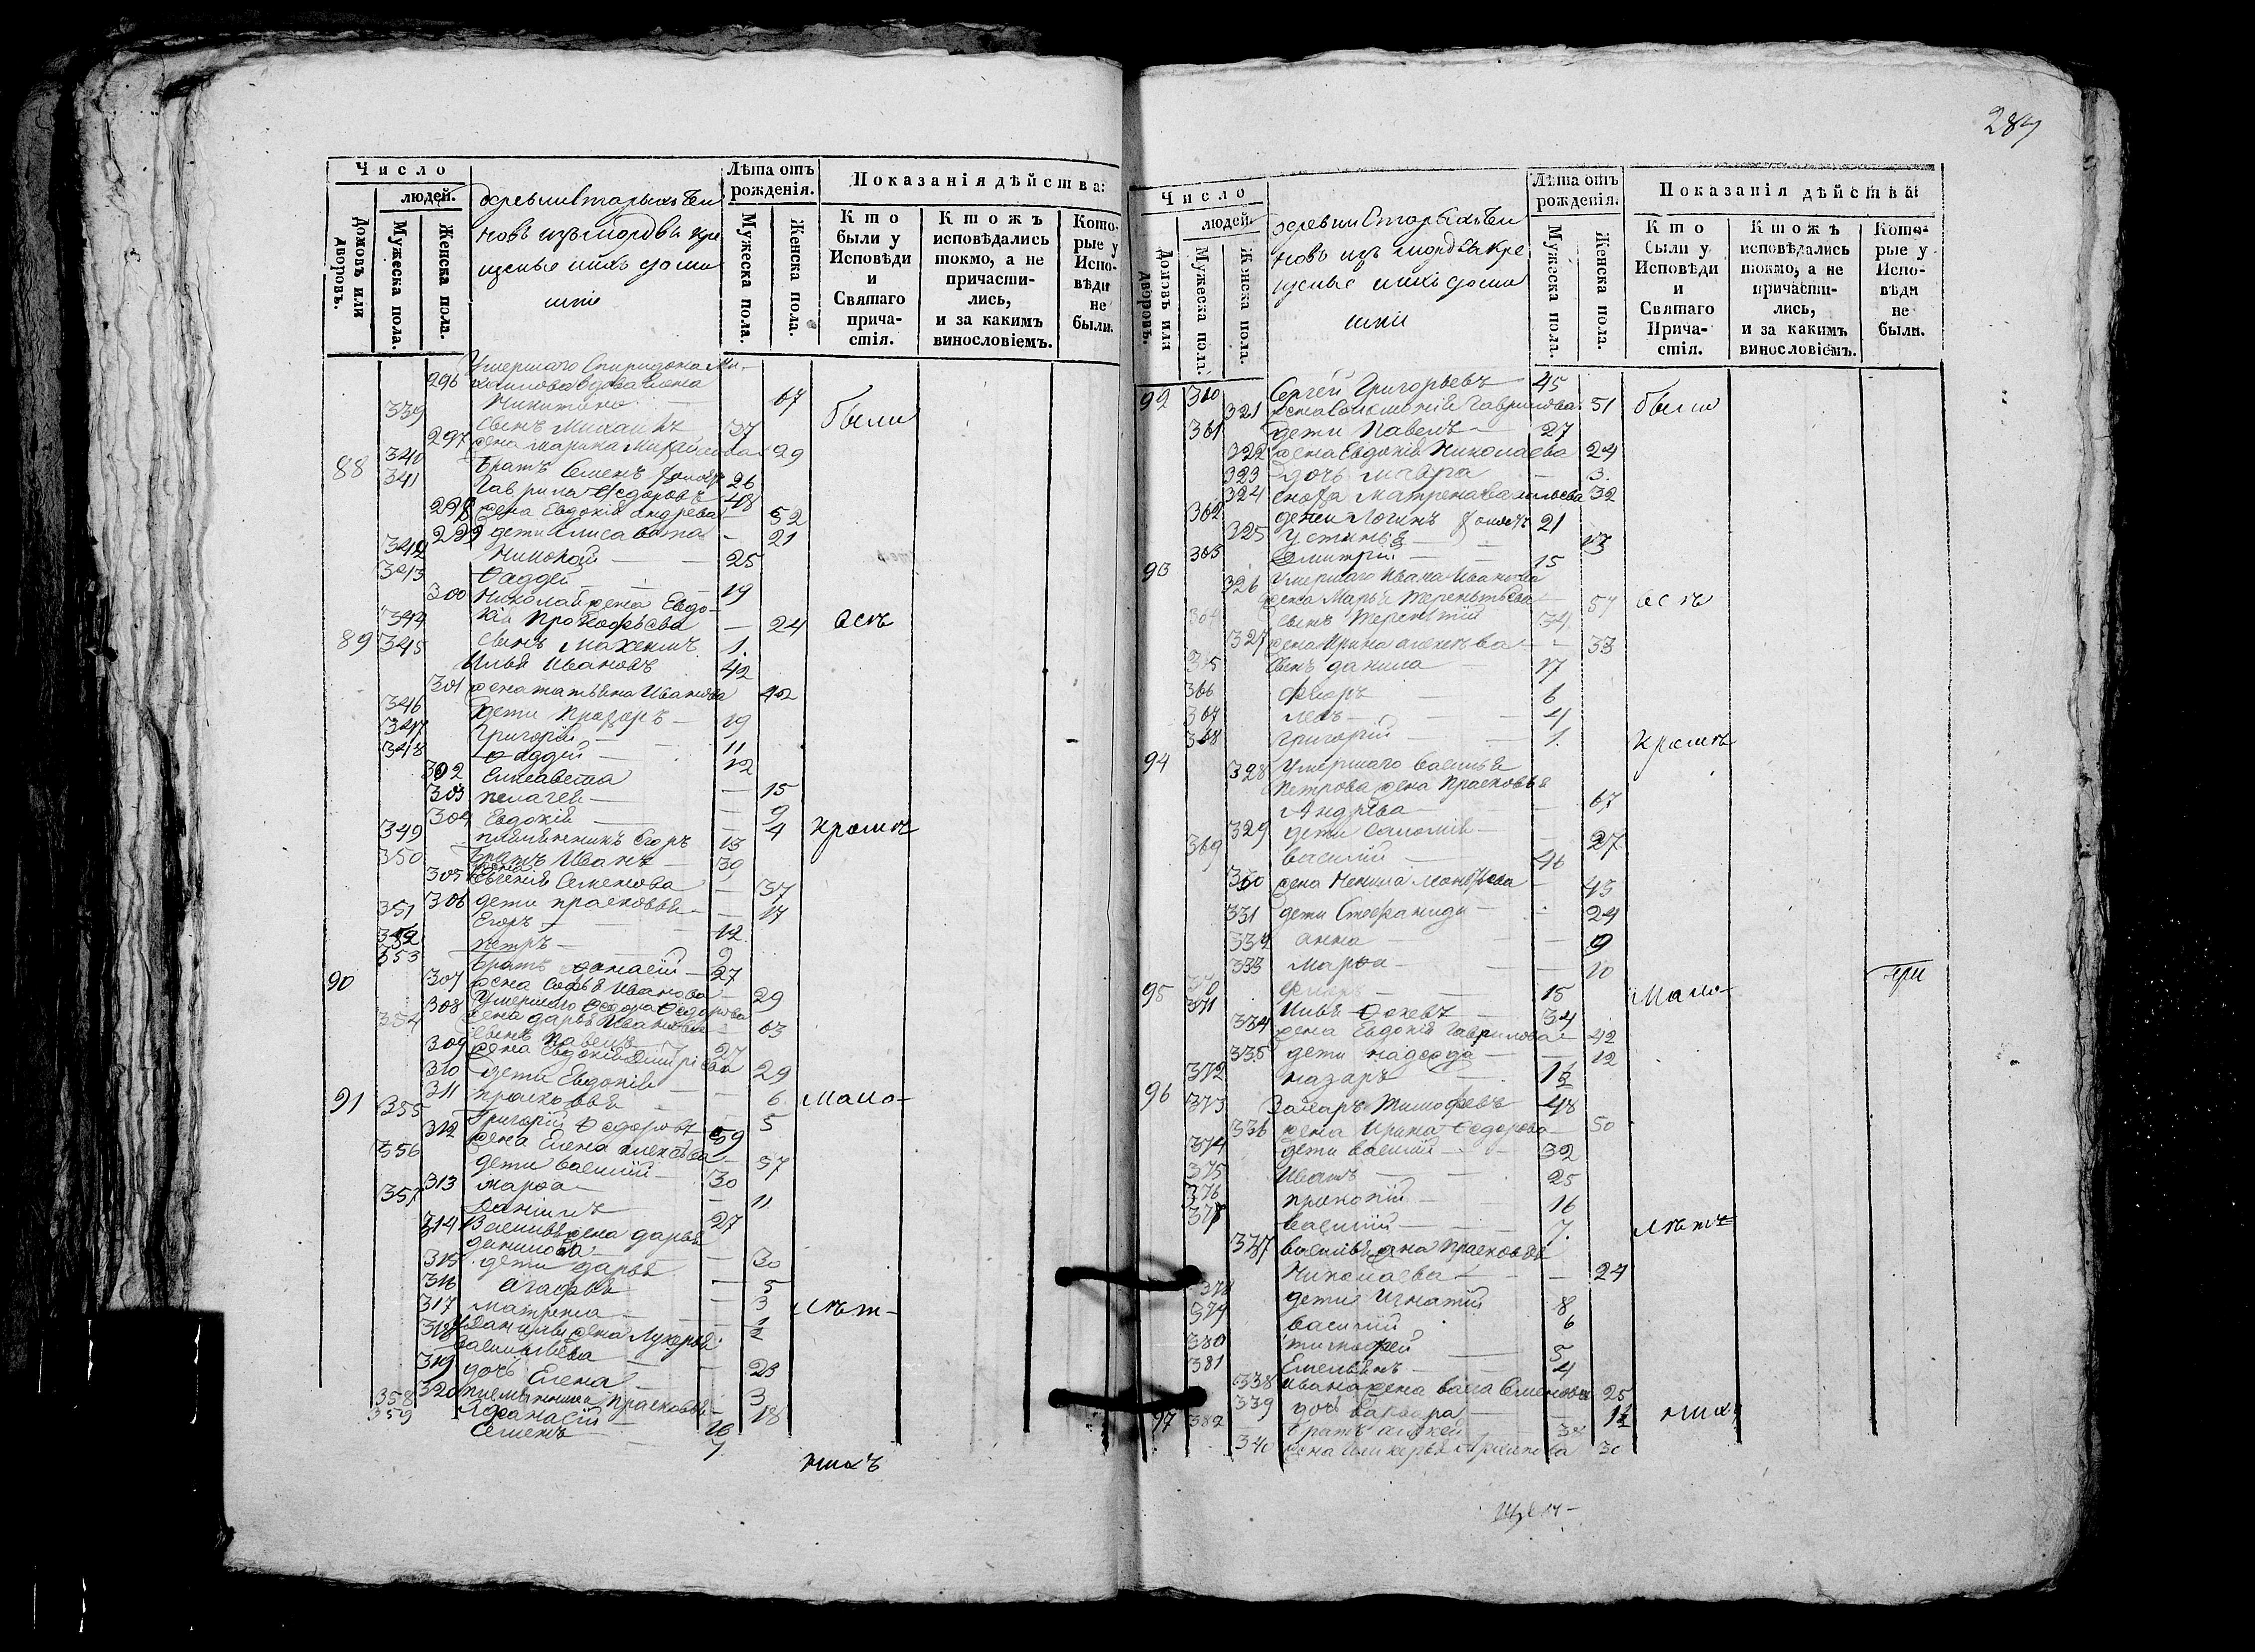 289
Число
людей.
Домовъ или дворовъ.
Мужеска пола.
Женска пола.
деревни Старыхъ
новъ изъ мордвы кре
щеные и ихъ дома
шніе
Лѣта отъ рожденія.
Мужеска пола.
Женска пола.
Показанія дѣйства:
Кто были у Исповѣди и Святаго причастія.
Ктожъ исповѣдались токмо, а не причастились, и за какимъ винословіемъ.
Которые у Исповѣди не были.
Умершаго Спиридона Ми
296 хаилова вдова Елена
Никитина 67 были
339 Сынъ Михаилъ 37
297 жена Марина Михайлова 29
340 братъ Семенъ холостъ 26
88 341 Гаврила Федоровъ 48
298 жена Евдокія Андрева 52
299 дети Елисавета 21
342 Николай 25
343 Фаддей 19
300 Николай жена Евдо
кія Прокофьева 24
344 сынъ 1
89 345 Илья Ивановъ 42
301 жена татьяна Иванова 42
346 дети Назаръ 19
347 Григорій 11
348 Фаддей 12
302 Елисавета 15
303 пелагея 9
304 Евдокія 4
349 племянникъ Егоръ 13
350 братъ Иванъ 39
305 жена Евгенія Семенова 37
306 дети прасковья 17
351 Егоръ 12
352 петръ 9
353 братъ Афанасій 27
307 жена Софья Иванова 29
90 308 Умершаго Федора Федорова
жена дарья Иванова 63
354 сынъ павелъ 27
309 жена Евдокія Дмитріева 29
310 дети Евдокія 6
311 прасковья 5
91 355 Григорій Федоровъ 59
312 жена Елена Алексѣева 57
356 дети василій 30
313 марфа 11
357 Данилъ 27
314 Василья жена дарья
данилова 30
315 дети дарья 5
316 агафья 3
317 матрена
318 Данилы жена Лукерья
васильева 23
319 дочь Елена 3
320 племянница прасковья 18
358 Афанасій 16
359 Семенъ 7
Число
людей.
Домовъ или дворовъ.
Мужеска пола.
Женска пола.
деревни Старыхъ
новъ изъ мордвы кре
щеные и ихъ дома
шніе
Лѣта отъ рожденія.
Мужеска пола.
Женска пола.
Показанія дѣйства:
Кто были у Исповѣди и Святаго Причастія.
Ктожъ исповѣдались токмо, а не причастились, и за какимъ винословіемъ.
Которые у Исповѣди не были.
92 360 Сергѣй Григорьевъ 45
321 жена Гаврилова 51 были
361 дети Павелъ 27
322 жена Евдокія Николаева 24
323 дочь мавра 3
324 сноха матрена васильева 32
362 дети Логинъ холостъ 21
325 Устинья 17
363 Димитрій 15
93 Умершаго Ивана Иванова
326 жена Марья Терентьева 57
364 сынъ Терентій 34
327 жена Ирина алексѣева 33
365 сынъ данила 17
366 Федоръ 6
367 левъ 4
368 Григорій 1
94 328 Умершаго василья
Петрова жена Прасковья
Андрева 67
329 дети Саломія 27
369 василій 46
330 жена Ненила 45
331 дети Стефанида 24
332 анна 9
333 марфа 10
370 15
95 371 Илья Фокевъ 34
334 жена Евдокія Гаврилова 42
335 дети надежда 12
372 назаръ
96 373 Захаръ Тимофевъ 48
336 жена Ирина Федорова 50
374 дети василій 32
375 Иванъ 25
376 прокопій 16
377 василій 7
337 василья жена прасковья
Николаева 24
378 дети Игнатій 8
379 василій 6
380 тимофей 5
381 Емельянъ 4
338 Ивана жена васа Семенова 25
339 дочь варвара
97 382 братъ алексей
340 жена 30